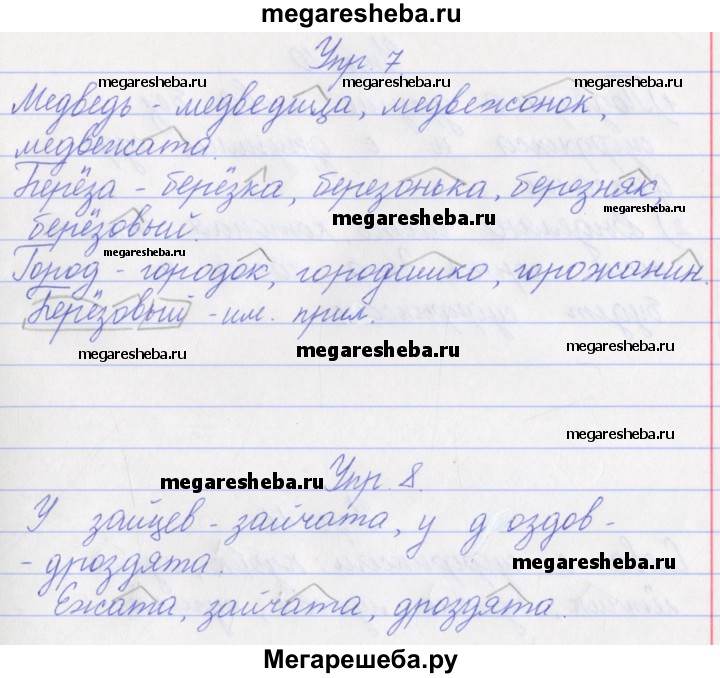 megaresheba.ru
Упр. 7
megaresheba.ru megaresheba.ru
Медведь - медведица, медвежонок,
медвежата.
megaresheba.ru
Берёза - берёзка, березонька, березняк,
megaresheba.ru megaresheba.ru
берёзовый.
megaresheba.ru
Город - городок, городишко, горожанин.
Берёзовый - им. прил.
megaresheba.ru megaresheba.ru megaresheba.ru
megaresheba.ru
megaresheba.ru
Упр. 8.
У зайцев - зайчата, у д оздов -
- дроздята.
megaresheba.ru
Ежата, зайчата, дроздята.
Мегарешеба.ру